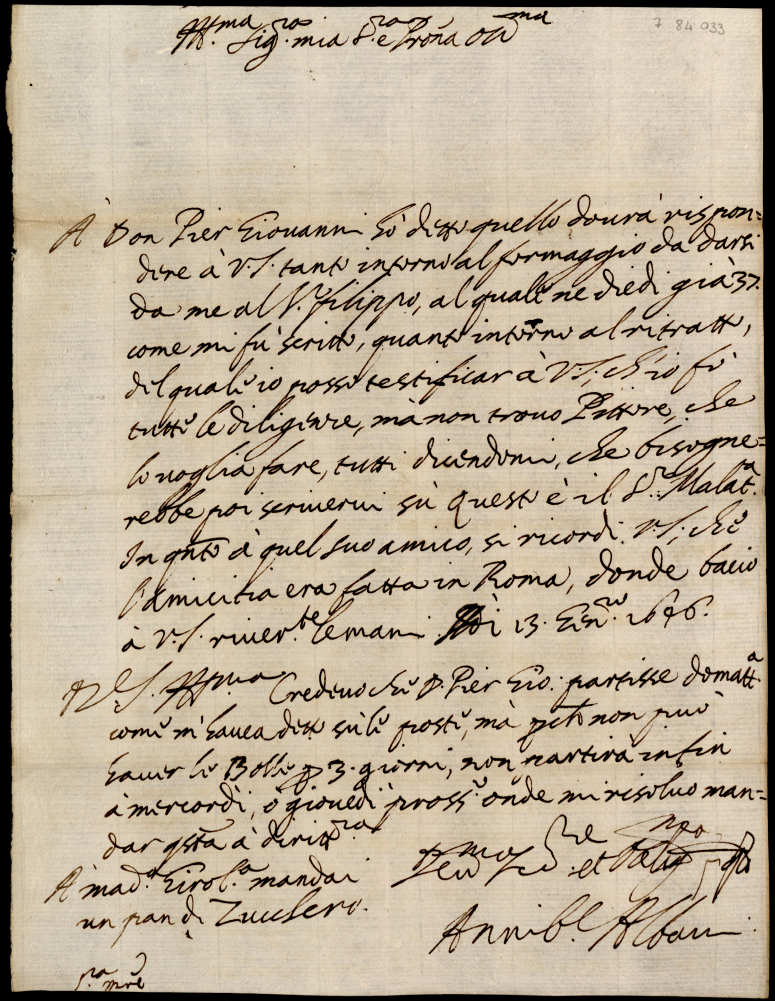 7 84 033
Ill.ma Sig.ra mia S.ra e P̃rona
À Don Pier Giovanni hò detto quello dourà rispon=
dere à V.S. tanto intorno al formaggio da darsi
da me al S.r filippo, al quale ne diedi già 37.
come mi fù scritto, quanto intorno al ritratto,
del quale io posso testificar à V.S. ch'io fò
tutte le diligenze, mà non trouo Pittore, che
lo voglia fare, tutti dicendomi, che bisogne=
rebbe poi scriverui sù Questo è il S.r Malat.a
In qñto à quel suo amico, si ricordi V.S. che
l'amicitia era fatta in Roma, donde bacio
à V.S. river.te le mani Di 13. Gen.ro 1646.
D V.S. Ill.ma Credeuo che D. Pier Gio: partisse domatt.a
come m'hauea detto sù le poste, mà p̃chè non può
hauer le Bolle p 3. giorni, non partirà infin
à mercordì, ò giouedì pross.o onde mi risoluo man=
dar q̃sta à diritt.ra
À mad.a Girol.a mandai
un pan di Zucchero.
Deu.mo Ser.re et
Annib.e Albani
S.ra m̃re